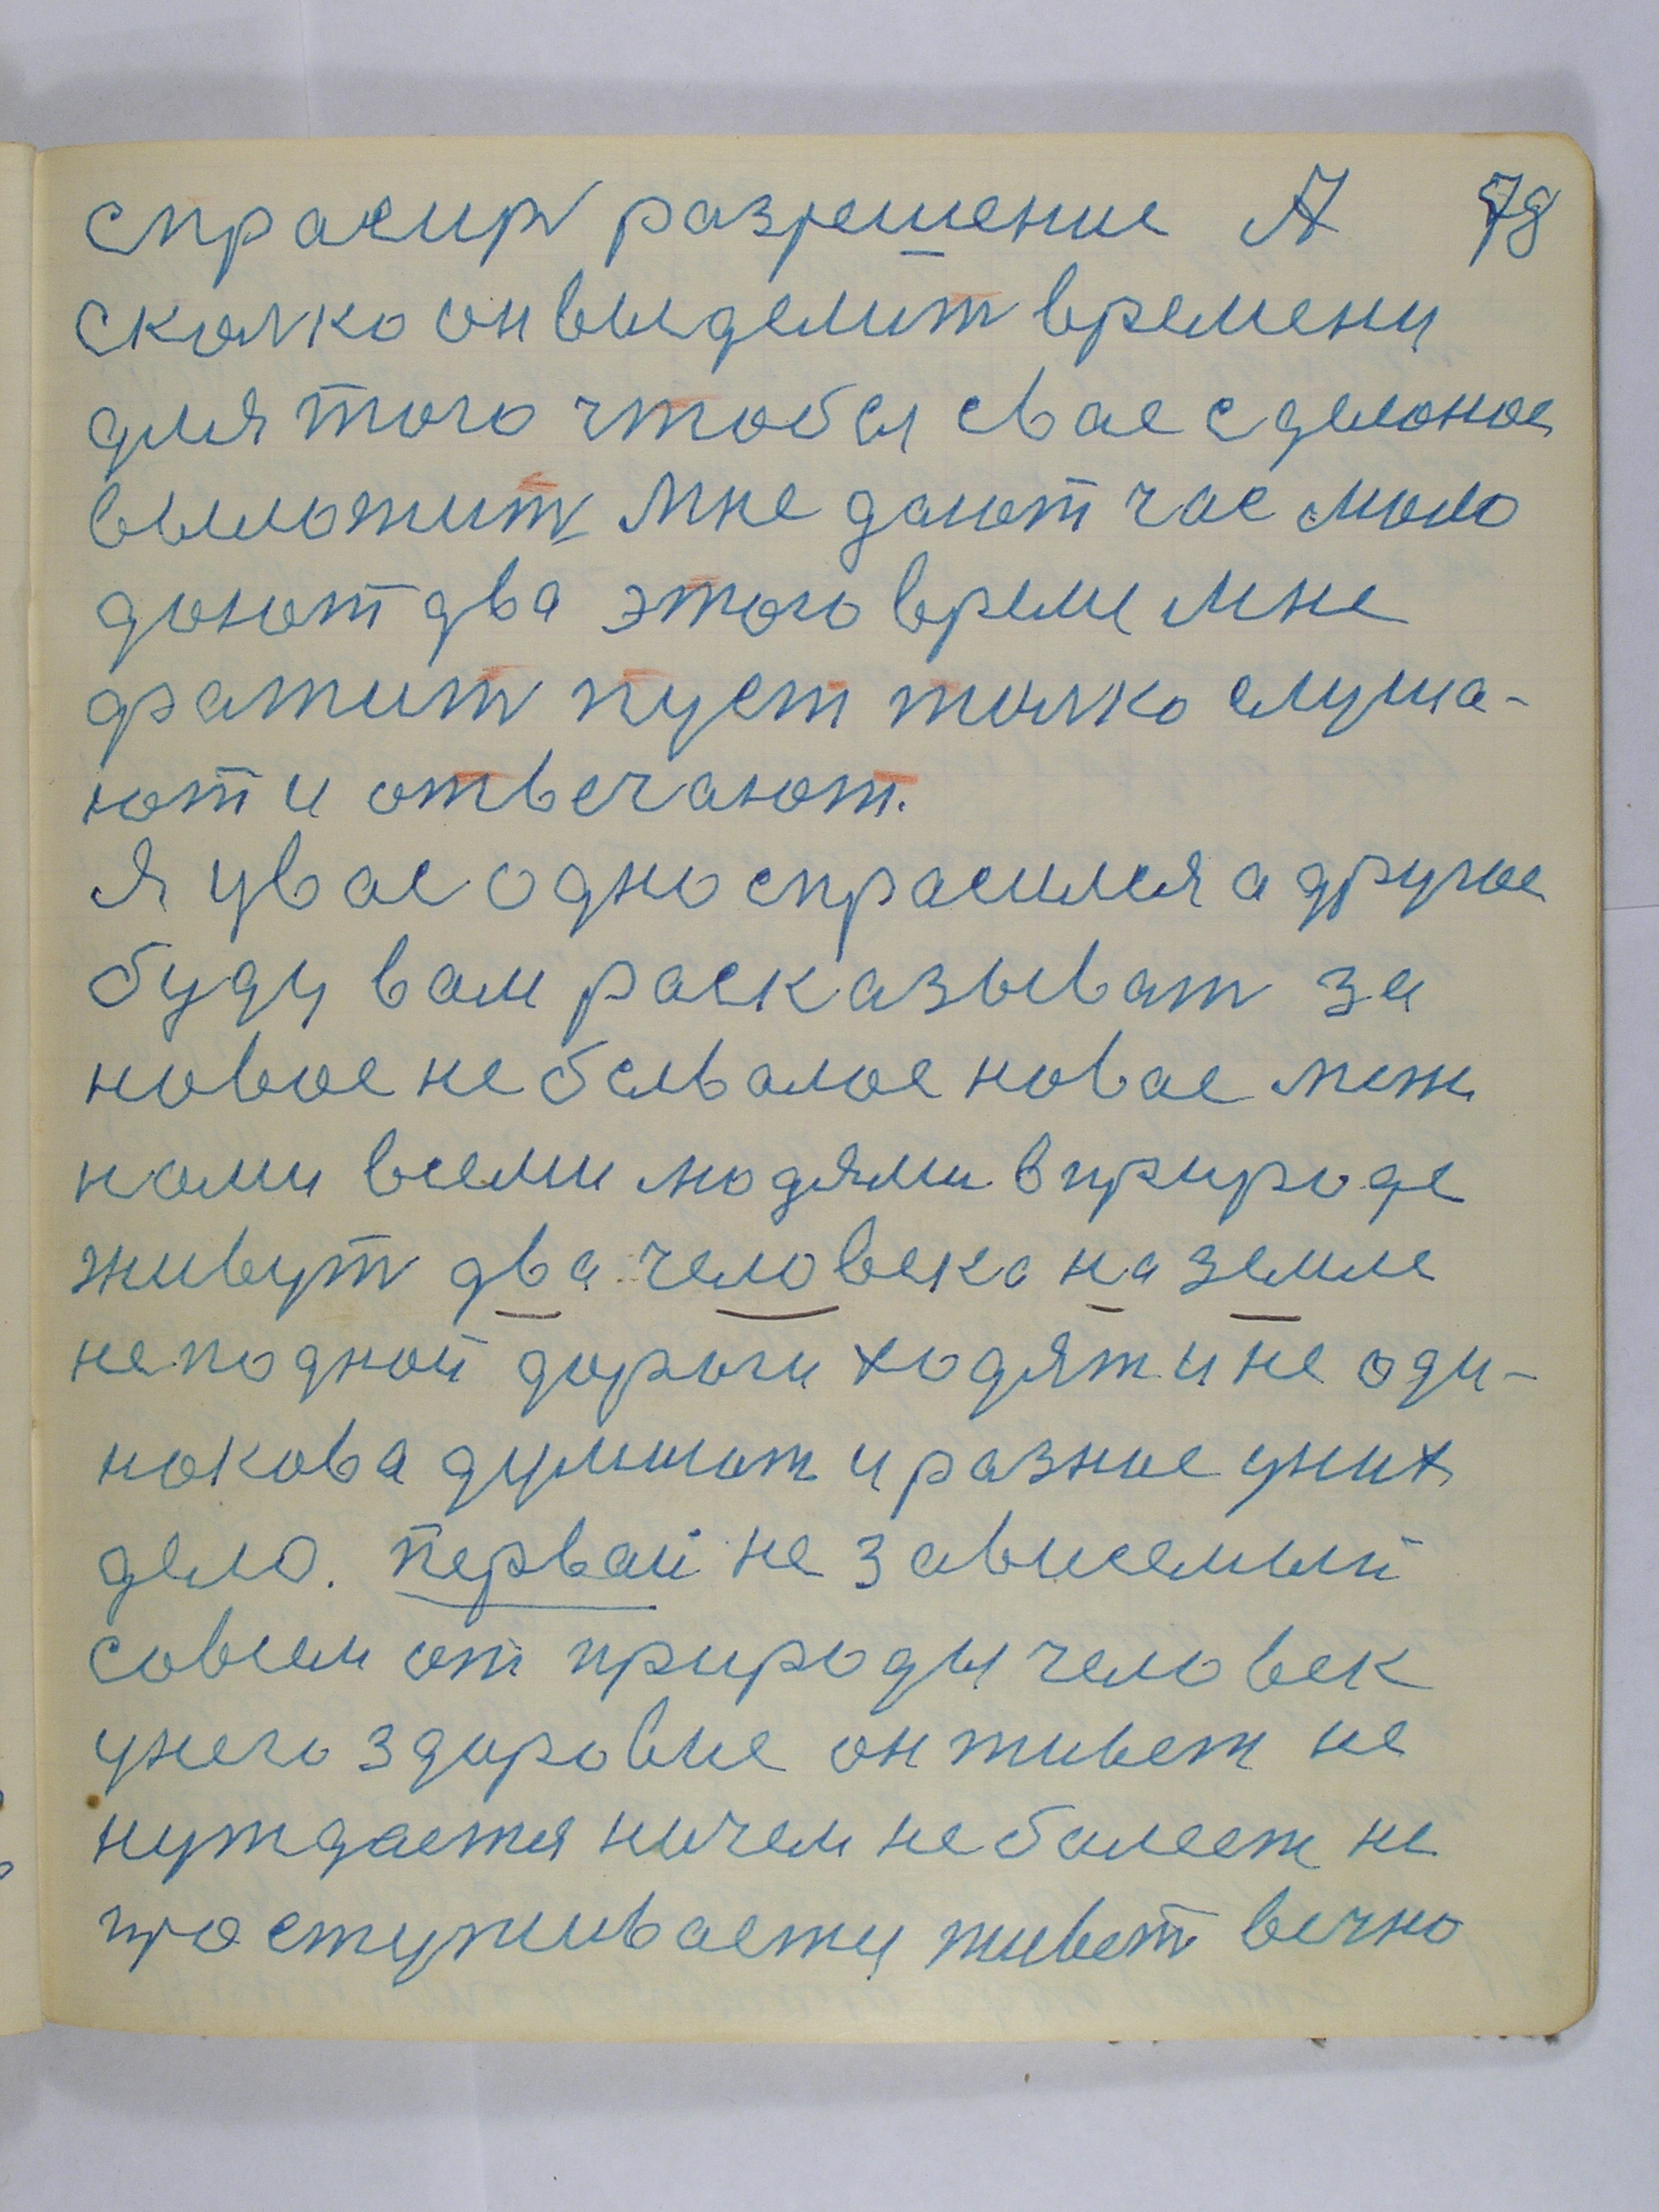 спрасир разрешение А 78
сколко он выделит времени
для того чтобы свае сделоное
выложит мне дают час мало
дают два этого време мне
фатит пуст толко слуша-
ют и отвечают.
Я увас одно спрасился а другое
буду вам расказыват за
новое не бывалое новае меж
нами всеми людями в природе
живут два человека на земле
не подной дороги ходят и не оди-
накова думают и разное у них
дело. Первай не зависемый
совсем от природы человек
у него здоровие он живет не
нуждается ничем не болеет не
простуживается живет вечно